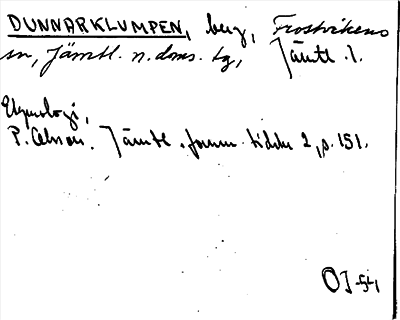 DUNNARKLUMPEN, berg, Frostvikens
sn, Jämtl. n. doms. tg, Jämtl. l.
Etymologi,
P. Olsson. Jämtl. fornm. tidskr 2, s. 151.
OJ-54